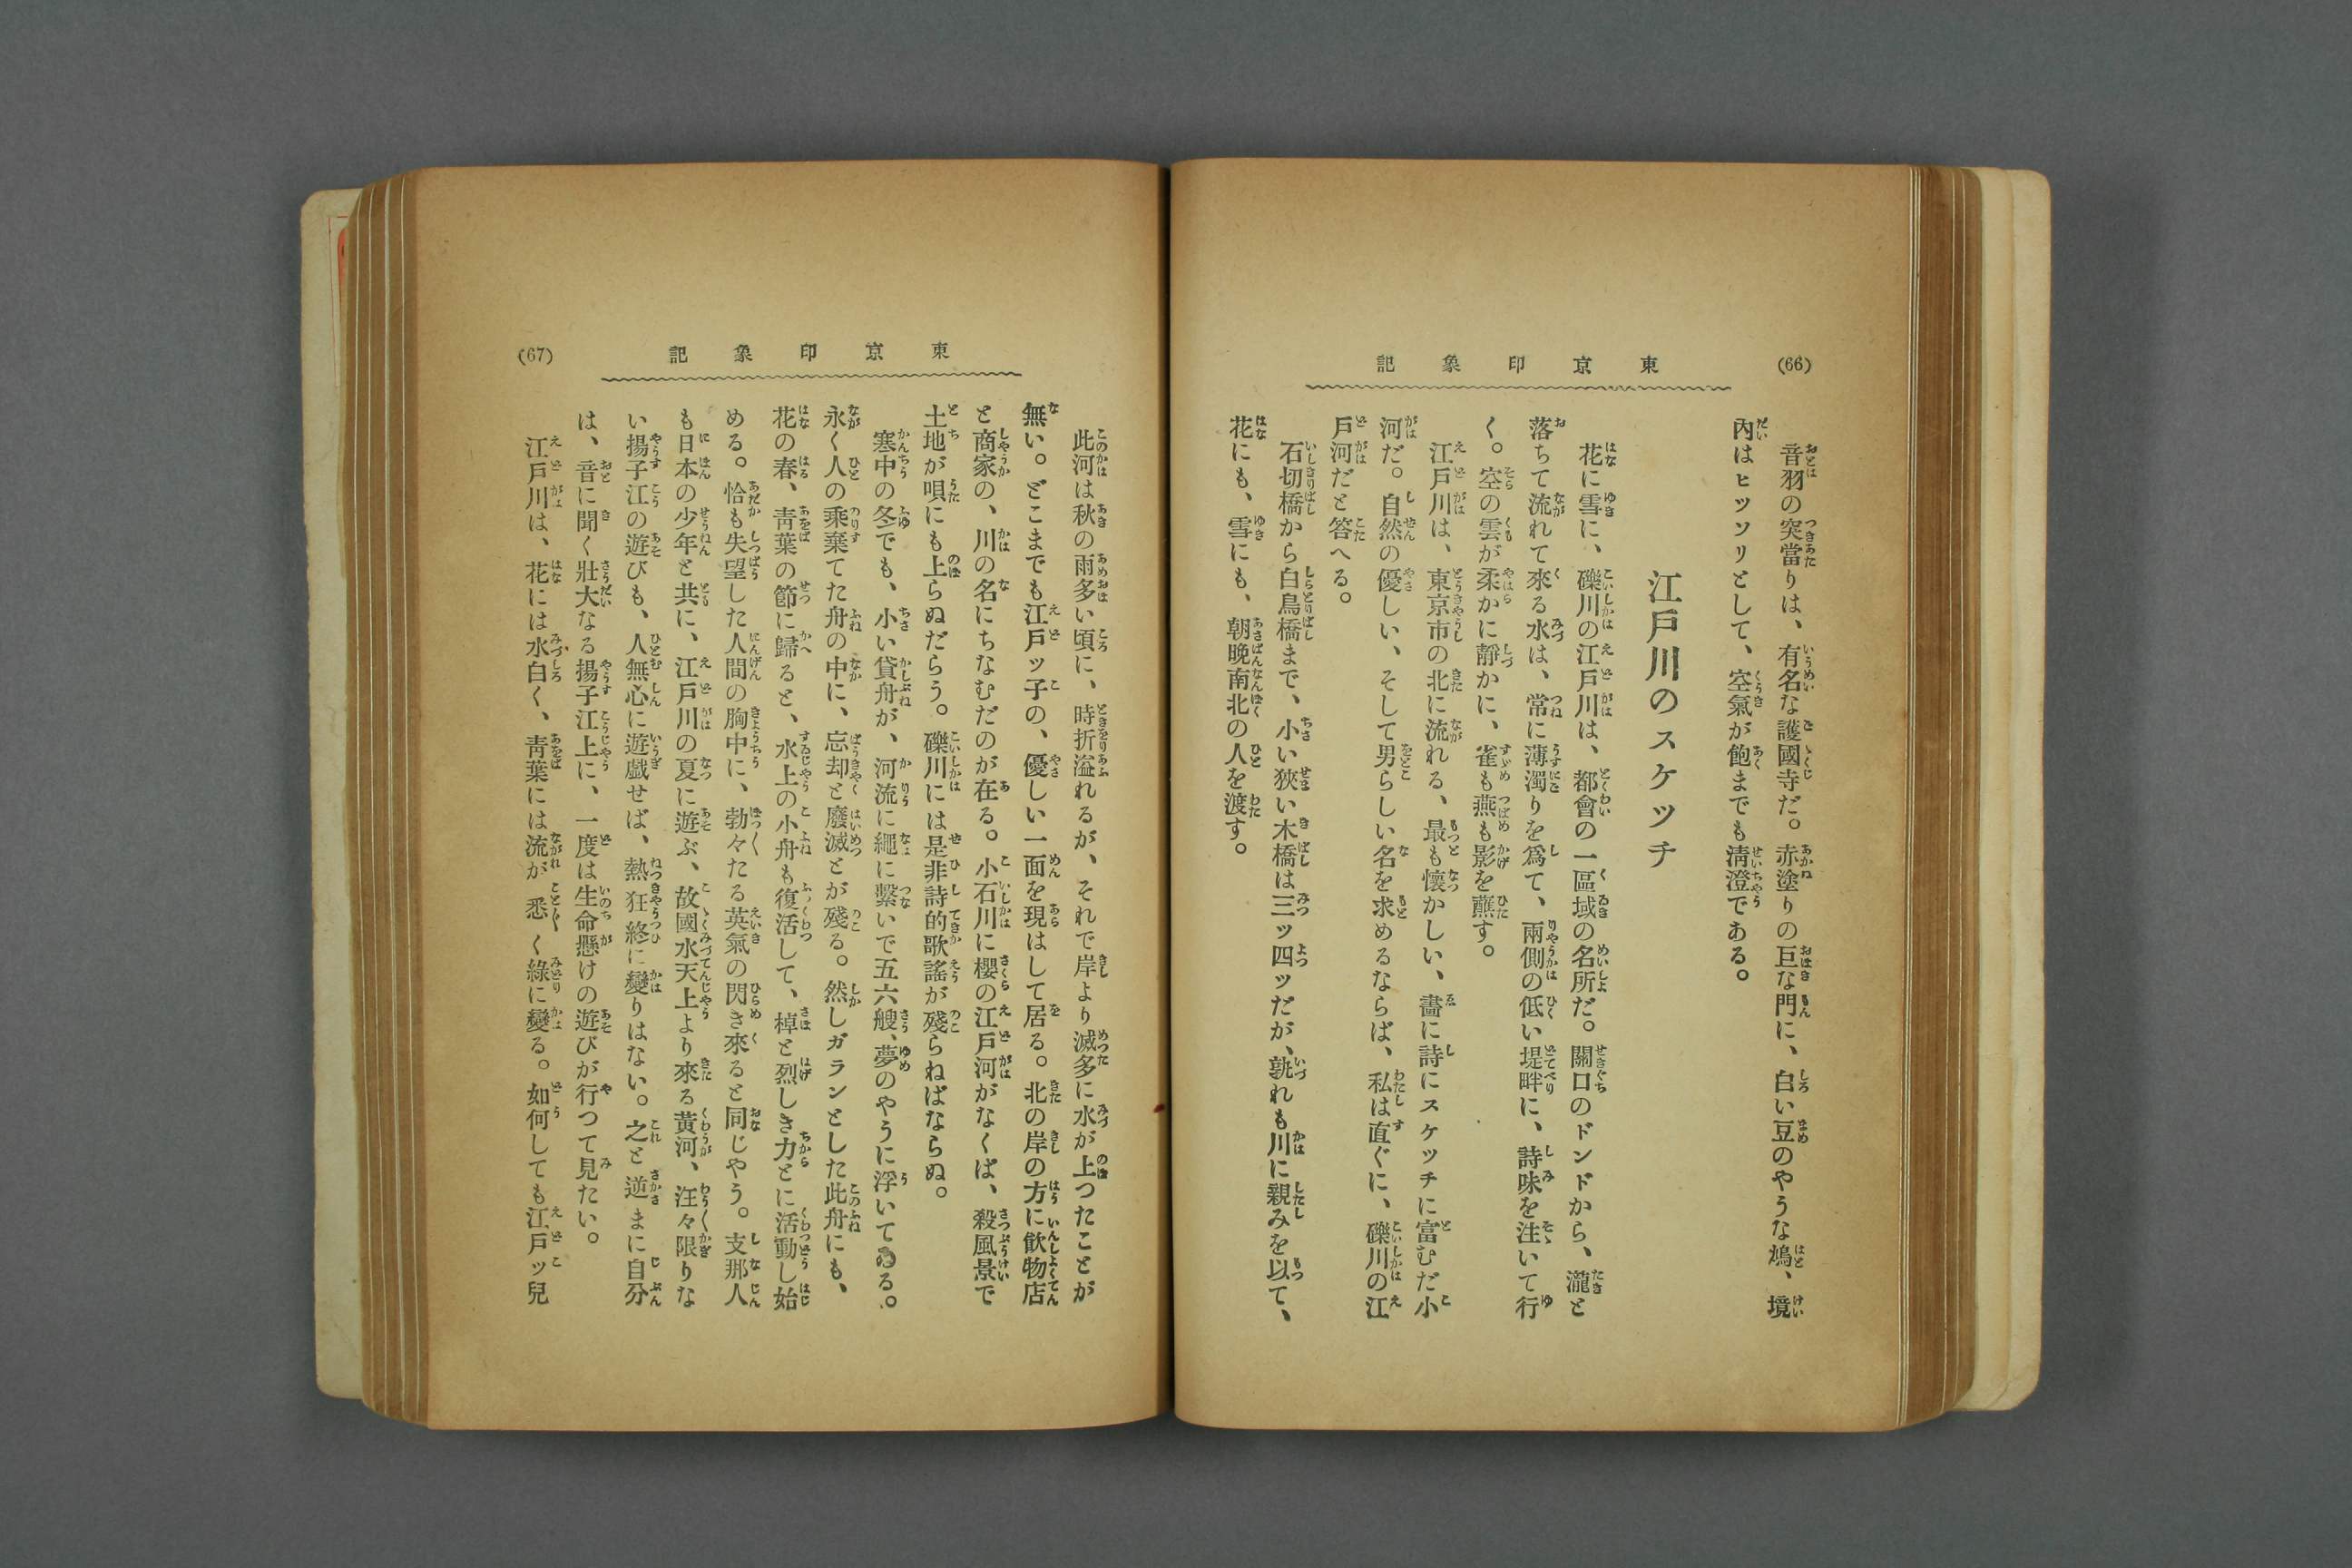 (66)
東京印象記
音羽の突當りは、有名な護國寺だ。赤塗りの巨な門に、白い豆のやうな鳩、境
內はヒツソリとして、空氣が飽までも淸澄である。
江戸川のスケッチ
花に雪に、礫川の江戸川は、都會の一區域の名所だ。關口のドンドから、瀧と
落ちて流れて來る水は、常に薄濁りを爲て、兩側の低い堤畔に、詩味を注いて行
く。空の雲が柔かに靜かに、雀も燕も影を蘸す。
江戸川は、東京市の北に流れる、最も懷かしい、畵に詩にスケッチに富むだ小
河だ。自然の優しい、そして男らしい名を求めるならば、私は直ぐに、礫川の江
戸河だと答へる。
石切橋から白鳥橋まで、小い狹い木橋は三ッ四ッだが、孰れも川に親みを以て、
花にも、雪にも、朝晩南北の人を渡す。
東京印象記
(67)
此河は秋の雨多い頃に、時折溢れるが、それで岸より滅多に水が上つたことが
無い。どこまでも江戸ッ子の、優しい一面を現はして居る。北の岸の方に飮物店
と商家の、川の名にちなむだのが在る。小石川に櫻の江戸河がなくば、殺風景で
土地が唄にも上らぬだらう。礫川には是非詩的歌謠が殘らねばならぬ。
寒中の冬でも、小い貸舟が、河流に繩に繫いで五六艘、夢のやうに浮いてゐる。
永く人の乘棄てた舟の中に、忘却と廢滅とが殘る。然しガランとした此舟にも、
花の春、靑葉の節に歸ると、水上の小舟も復活して、棹と烈しき力とに活動し始
める。恰も失望した人間の胸中に、勃々たる英氣の閃き來ると同じやう。支那人
も日本の少年と共に、江戸川の夏に遊ぶ、故國水天上より來る黃河、汪々限りな
い揚子江の遊びも、人無心に遊戲せば、熱狂終に變りはない。之と逆まに自分
は、音に聞く壯大なる揚子江上に、一度は生命懸けの遊びが行つて見たい。
江戸川は、花には水白く、靑葉には流が悉く綠に變る。如何しても江戸ッ兒